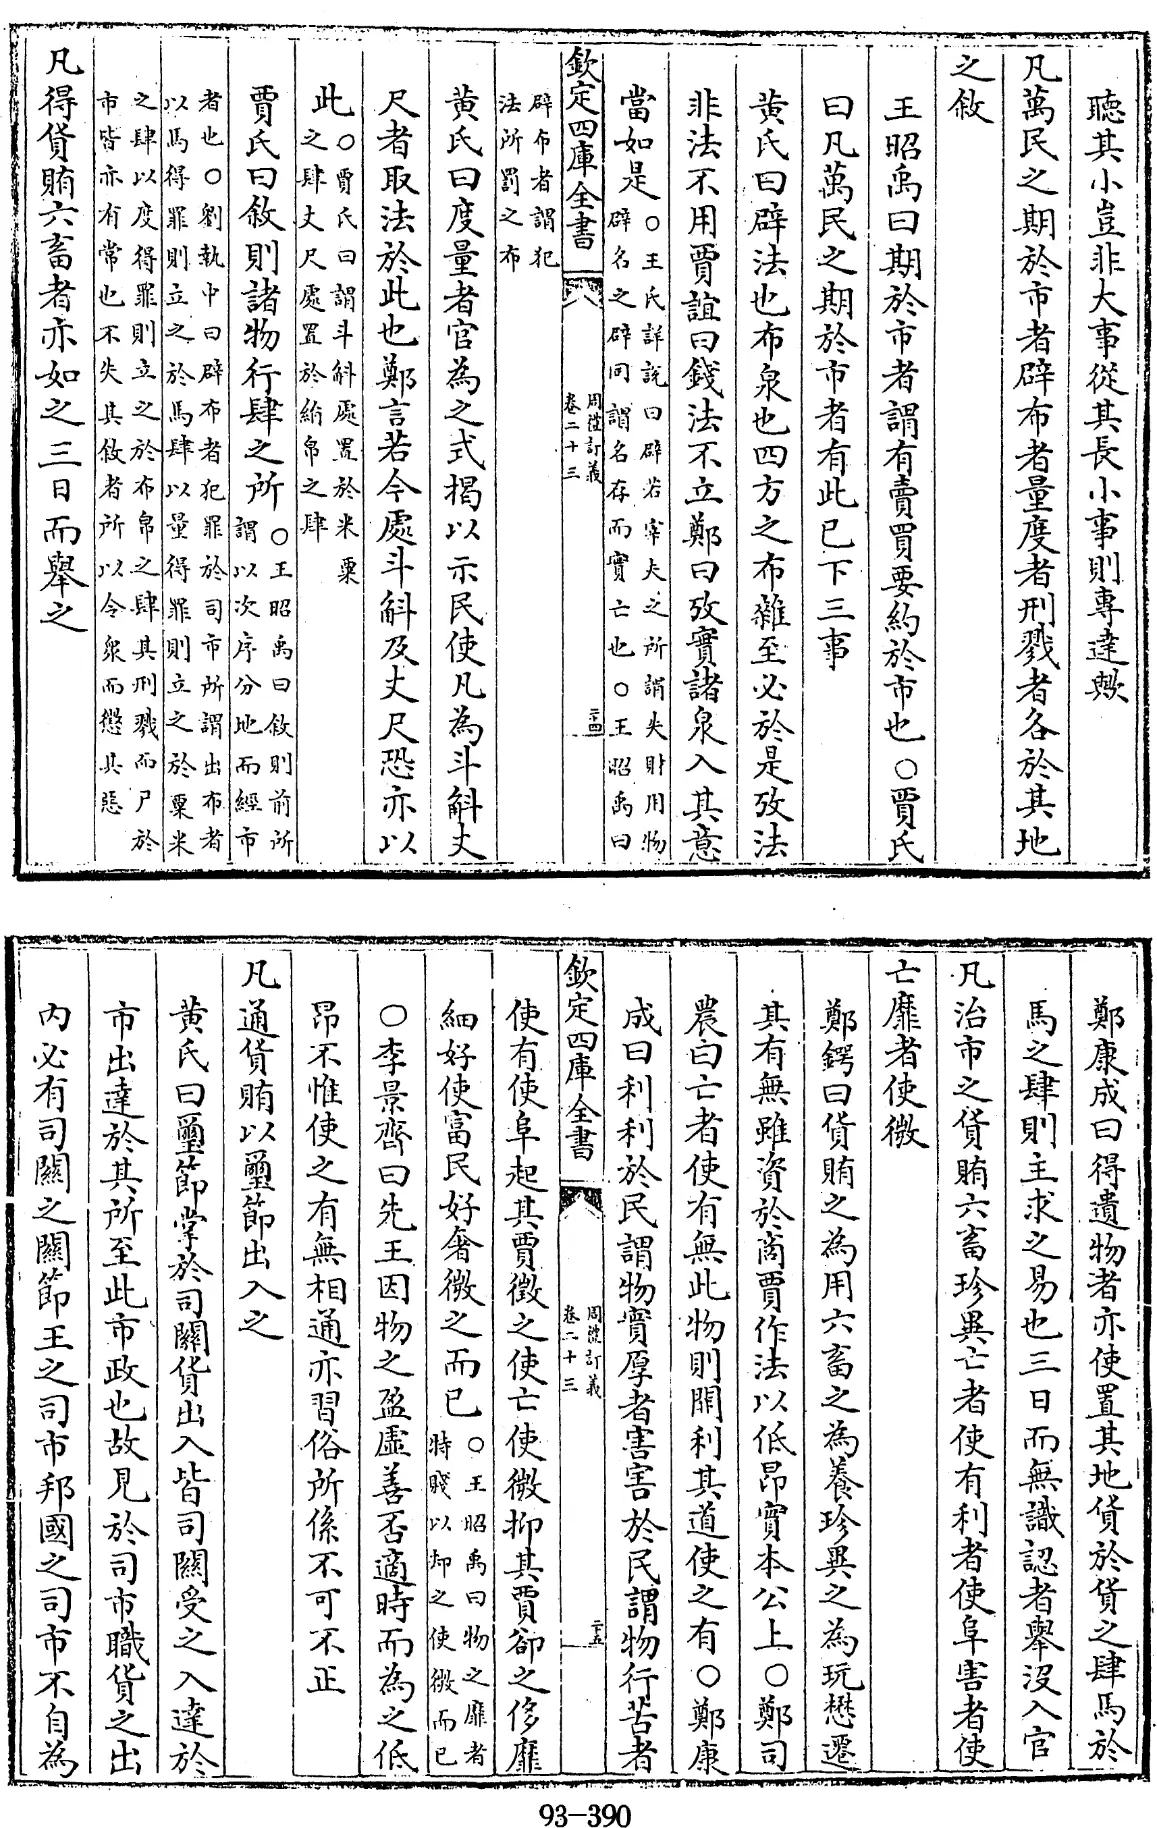 聽其小豈非大事從其長小事則專達歟
凡萬民之期於市者辟布者量度者刑戮者各於其地
之敘
王昭禹曰期於市者謂有賣買要約於市也○賈氏
曰凡萬民之期於市者有此已下三事
黃氏曰辟法也布泉也四方之布雜至必於是攷法
非法不用賈誼曰錢法不立鄭曰攷實諸泉入其意
當如是○王氏詳說曰辟若宰夫之所謂失財用物
辟名之辟同謂名存而實亡也○王昭禹曰
辟布者謂犯
法所罰之布
欽定四庫全書
周禮訂義
卷二十三
二十四
黃氏曰度量者官為之式揭以示民使凡為斗斛丈
尺者取法於此也鄭言若今處斗斛及丈尺恐亦以
此○賈氏曰謂斗斛處置於米粟
之肆丈尺處置於絹帛之肆
賈氏曰敘則諸物行肆之所○王昭禹曰敘則前所
謂以次序分地而經市
者也○劉執中曰辟布者犯罪於司市所謂出布者
以馬得罪則立之於馬肆以量得罪則立之於粟米
之肆以度得罪則立之於布帛之肆其刑戮而尸於
市皆亦有常也不失其敘者所以令衆而懲其惡
凡得貨賄六畜者亦如之三日而舉之
鄭康成曰得遺物者亦使置其地貨於貨之肆馬於
馬之肆則主求之易也三日而無識認者舉沒入官
凡治市之貨賄六畜珍異亡者使有利者使阜害者使
亡靡者使微
鄭鍔曰貨賄之為用六畜之為養珍異之為玩懋遷
其有無雖資於商賈作法以低昂實本公上○鄭司
農曰亡者使有無此物則開利其道使之有○鄭康
成曰利利於民謂物實厚者害害於民謂物行苦者
欽定四庫全書
周禮訂義
卷二十三
二十五
使有使阜起其賈徵之使亡使微抑其賈卻之侈靡
細好使富民好奢微之而已○王昭禹曰物之靡者
特賤以却之使微而已
○李景齊曰先王因物之盈虛善否適時而為之低
昂不惟使之有無相通亦習俗所係不可不正
凡通貨賄以璽節出入之
黃氏曰璽節掌於司關貨出入皆司關受之入達於
市出達於其所至此市政也故見於司市職貨之出
內必有司關之關節王之司市邦國之司市不自為
93-390